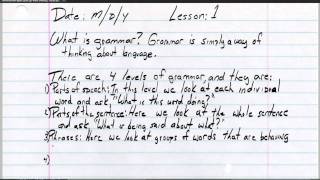 Date: M/D/Y Lesson: 1
What is grammar? Grammar is simply a way of
thinking about language.
There are 4 levels of grammar, and they are:
1) Parts of speech: In this level we look at each individual
word and ask, "What is this word doing?"
2) Parts of the sentence: Here we look at the whole sentence
and ask "What is being said about who?"
3) Phrases: Here we look at groups of words that are behaving
4)